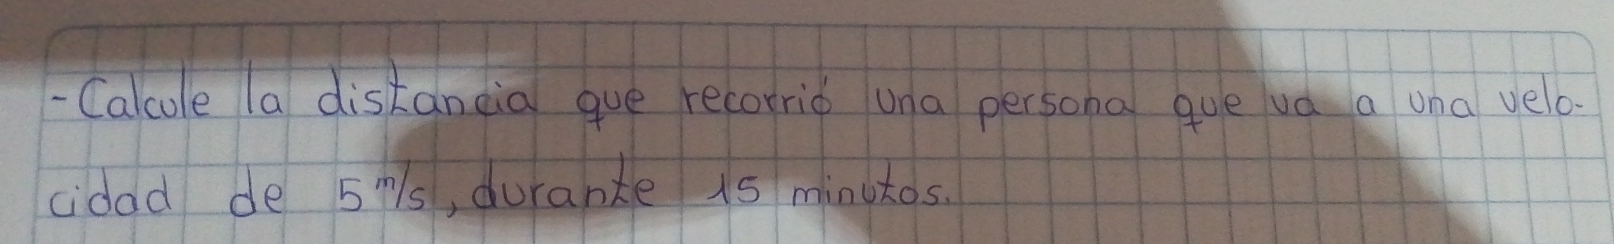 -Calcule la distancia que recorrió una persona que va a una velo-
cidad de 5 m/s, durante 15 minutos.